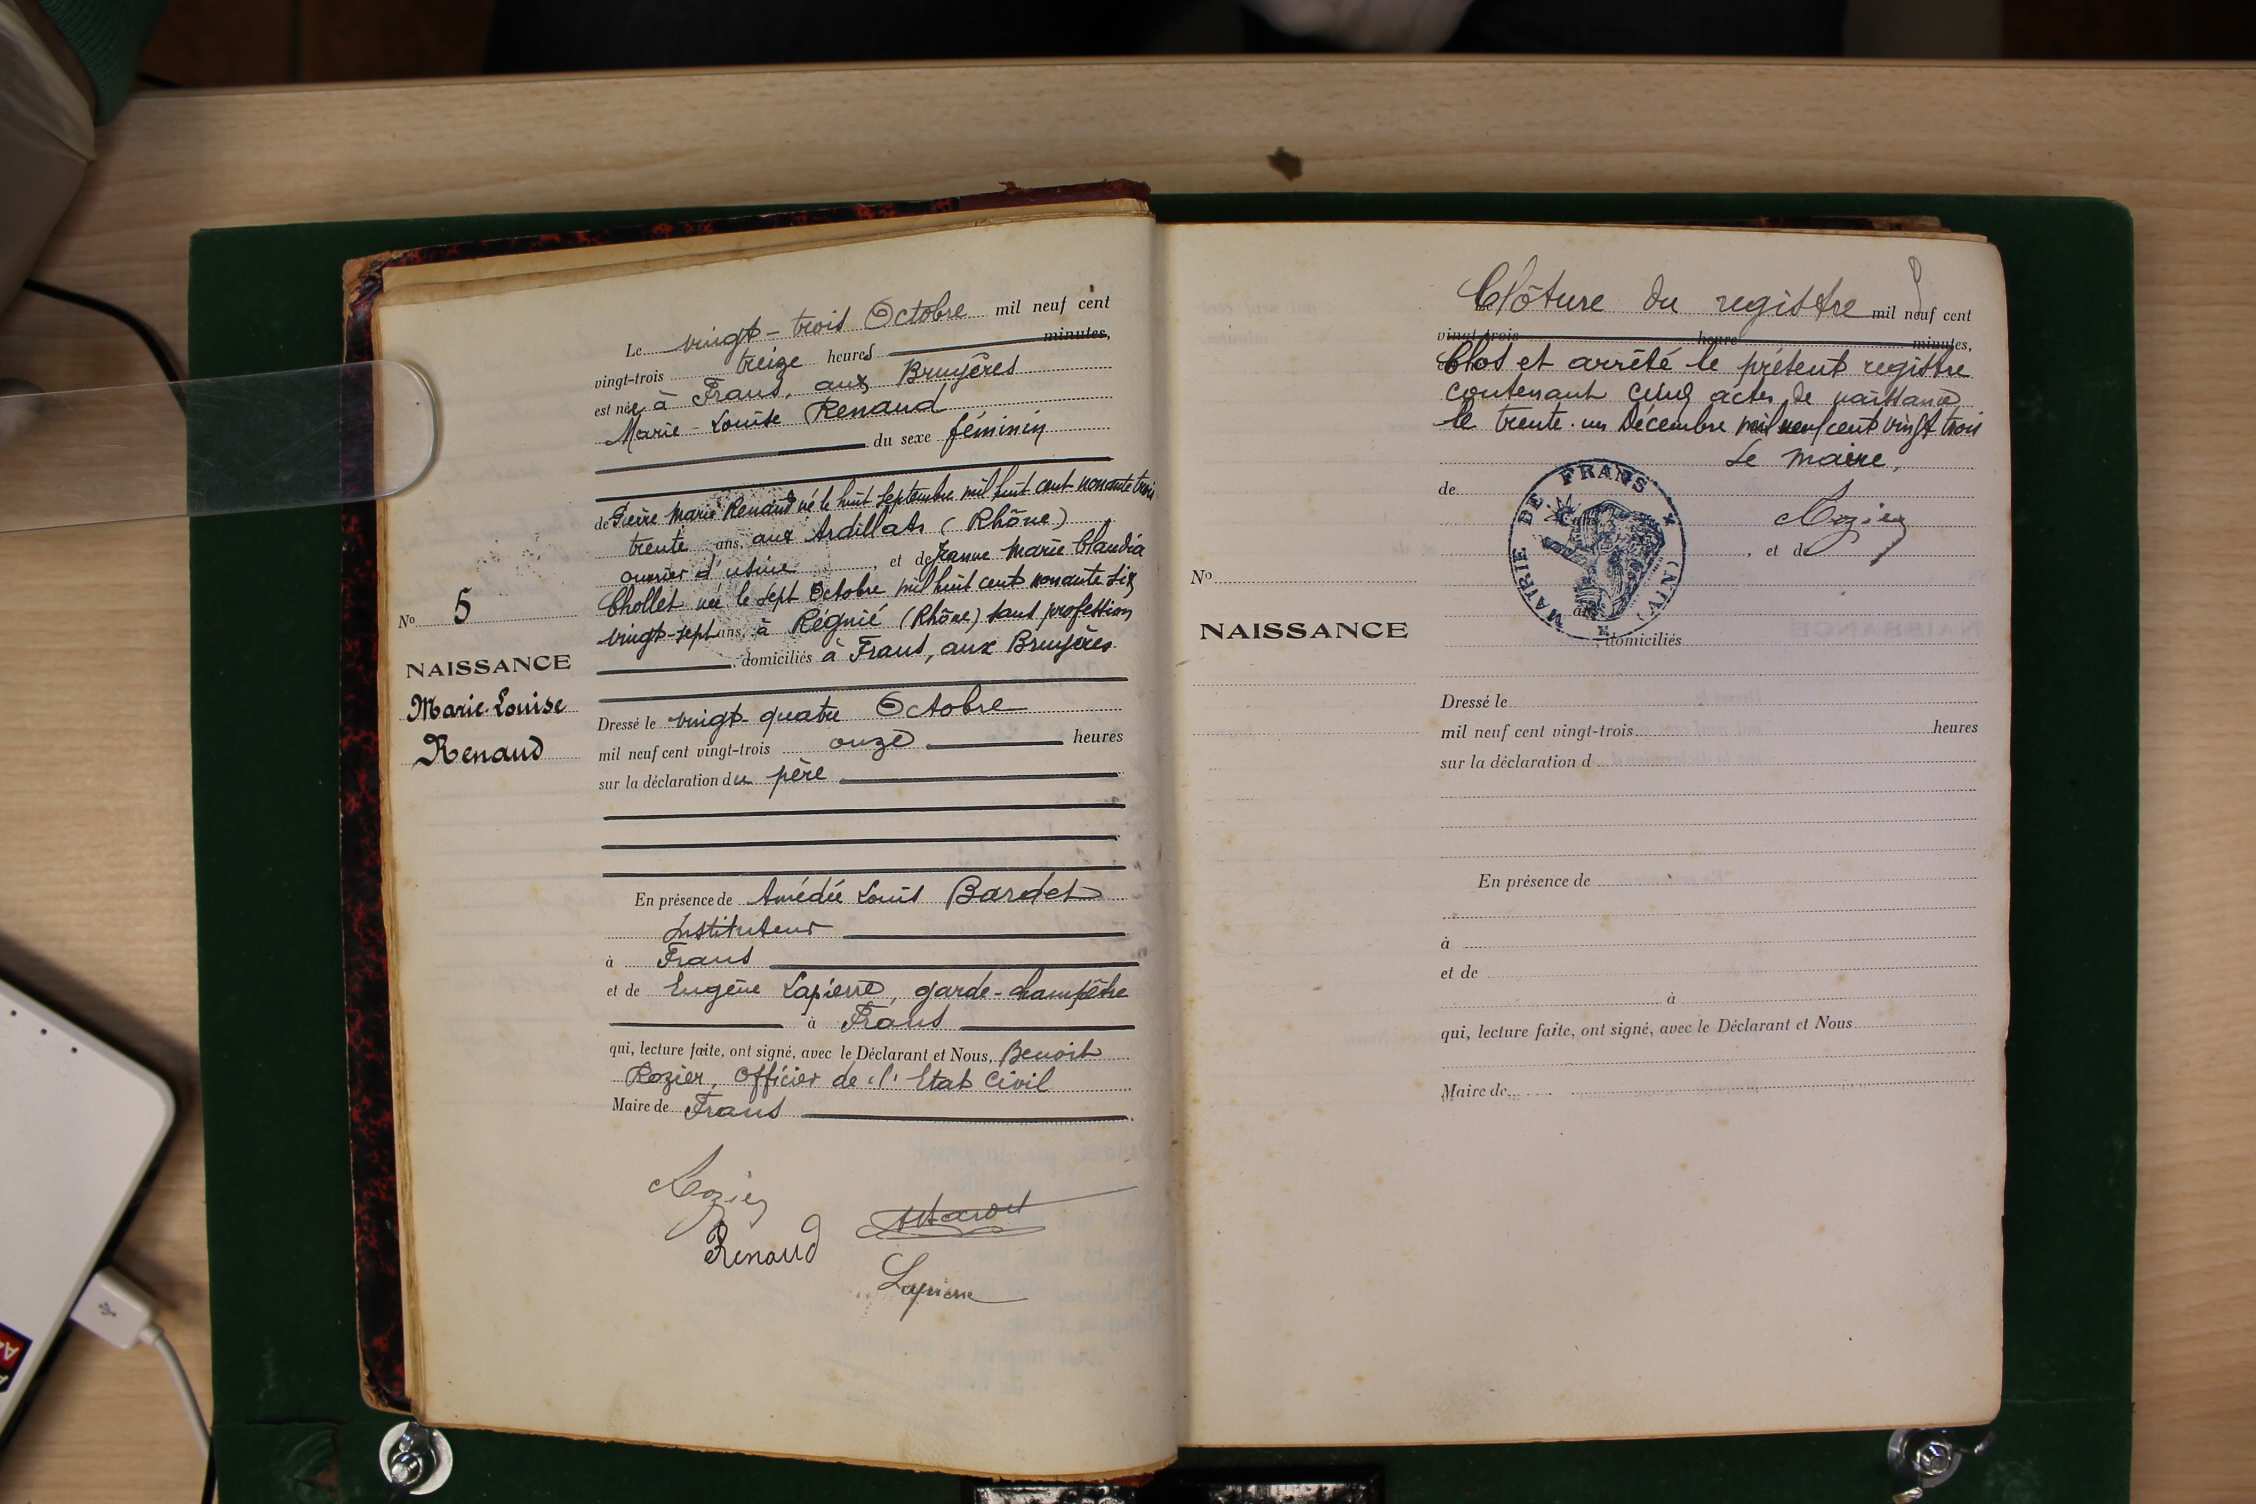 Le vingt-trois Octobre mil neuf cent
vingt-trois treize heures minutes,
est née à Frans, aux Bruyères
Marie-Louise Renaud
du sexe féminin
de Pierre Marie Renaud né le huit Septembre mil huit cent nonante trois
trente ans, aux Ardillats (Rhône)
ouvrier d'usine, et de Jeanne Marie Claudia
Chollet née le sept Octobre mil huit cent nonante six
vingt-sept ans, à Régnié (Rhône) sans profession
, domiciliés à Frans, aux Bruyères
No 5
NAISSANCE
Marie-Louise
Renaud
Dressé le vingt-quatre Octobre
mil neuf cent vingt-trois onze heures
sur la déclaration du père
En présence de Amédée Louis Bardet
Instituteur
à Frans
et de Eugène Lapierre, garde-champêtre
à Frans
qui, lecture faite, ont signé, avec le Déclarant et Nous, Benoit
Rozier, Officier de l'Etat Civil
Maire de Frans
Rozier
Renaud
Lapierre
Clôture du registre mil neuf cent
vingt-trois heure minutes,
Clos et arrêté le présent registre
contenant cinq actes de naissance
le trente-un Décembre mil neuf cent vingt trois
Le Maire,
de
Rozier
, et de
MAIRIE DE FRANS
ans
, domiciliés
No
NAISSANCE
Dressé le
mil neuf cent vingt-trois heures
sur la déclaration d
En présence de
à
et de
à
qui, lecture faite, ont signé, avec le Déclarant et Nous
Maire de